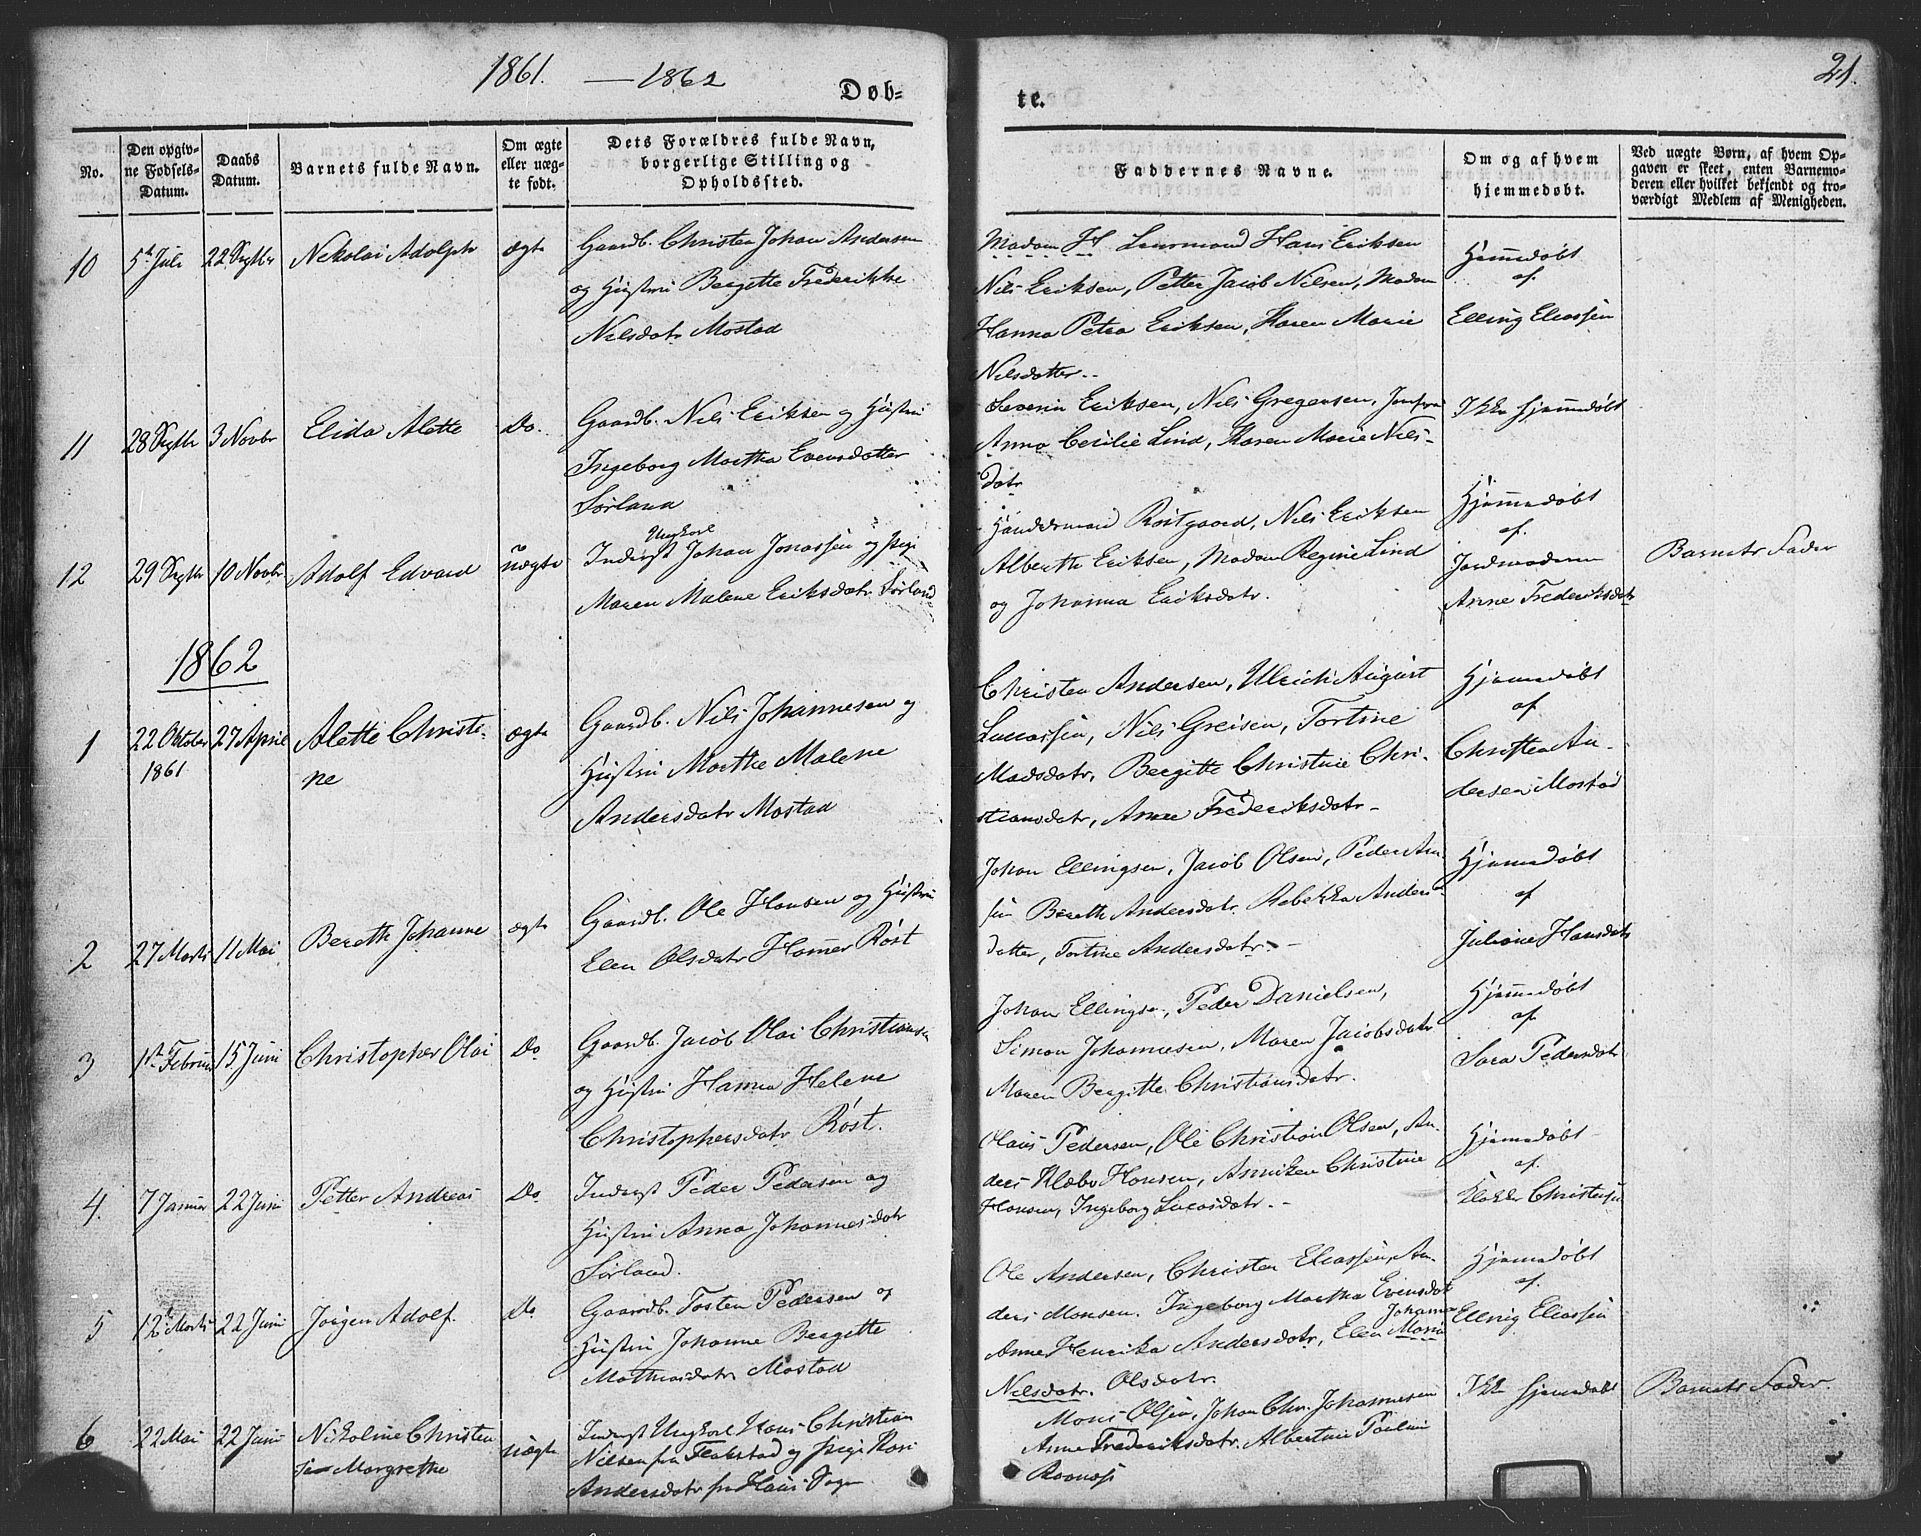 1861. — 1862
Døb-
te.
21.
No.
Den opgiv-
ne Fødsels-
Datum.
Daabs
Datum.
Barnets fulde Navn.
Om ægte
eller uæg-
te født.
Dets Forældres fulde Navn,
borgerlige Stilling og
Opholdssted.
Faddernes Navne.
Om og af hvem
hjemmedøbt.
Ved uægte Børn, af hvem Op-
gaven er skeet, enten Barnemo-
deren eller hvilket bekjendt og tro-
værdigt Medlem af Menigheden.
10
5te Juli
22 Septbr
Nikolai Adolph
ægte
Gaardb. Christen Johan Andersen
og Hustru Bergitte Frederikke
Nilsdatr Mostad
Madam H Hans Eriksen
Nils Eriksen, Petter Jacob Nilsen, Madam
Hanna Petra Eriksen, Karen Marie
Nilsdatter..
Hjemmedøbt
af
Elling Eliassen
11
28 Septbr
3 Novbr
Elida Alette
Do.
Gaardb. Nils Eriksen og Hustru
Ingeborg Martha Evensdatter
Sørland
Severin Eriksen, Nils Gregersen, Jomfru
Anna Cecilie Lind, Karen Marie Nils-
datr
Ikke hjemmedøbt
12
29 Septbr
10 Novbr
Adolf Edvard
uægte
Ungkarl
Inderst Johan Jonassen og Pige
Maren Malene Eriksdatr Sørland
Handelsmand Rostgaard, Nils Eriksen
Alberth Eriksen, Madam Regine Lind
og Johanna Eriksdatr.
Hjemmedøbt
af
Jordmoderen
Anne Frederiksdatr
Barnets Fader
1862
1
22 Oktober
1861
27 April
Alette Christi-
ne
ægte
Gaardb. Nils Johannesen og
Hustru Marthe Malene
Andersdatr Mostad
Christen Andersen, Ulrich August
Lucassen, Nils Greisen, Tortine
Madsdatr, Bergitte Christine Chri-
stiansdatr, Anne Frederiksdatr-
Hjemmedøbt
af
Christen An-
dersen Mostad
2
27 Marts
11 Mai
Bereth Johanne
ægte
Gaardb. Ole Hansen og Hustru
Elen Olsdatr Hamer Røst
Johan Ellingsen, Jacob Olsen, Peder An-
sen Bereth Andersdatr. Rebekka Anders-
datter, Tortine Andersdatr.-
Hjemmedøbt
af
Juliane Hansdatr
3
1ste Februar
15 Juni
Christopher Olai
Do
Gaardb. Jacob Olai Christiansen
og Hustru Hanna Helene
Christophersdatr Røst.
Johan Ellingsen, Peder Danielsen,
Simon Johannesen, Maren Jacobsdatr
Maren Bergitte Christiansdatr.
Hjemmedøbt
af
Sara Pedersdatr
4.
7 Januar
22 Juni
Petter Andreas
Do
Inderst Peder Pedersen og
Hustru Anna Johannesdatr
Sørland.
Olaus Pedersen, Ole Christian Olsen, An-
ders Klæbo Hansen, Anniken Christine
Hansen, Ingeborg Lucasdatr.-
Hjemmedøbt
af.
Klokker Christensen
5
12te Marts
22 Juni
Jørgen Adolf.
Do
Gaardb. Tosten Pedersen og
Hustru Johanne Bergitte
Mathiasdatr Mostad
Ole Andersen, Christen Eliassen, An-
ders Monsen. Ingeborg Martha Evensdatr
Anne Henrika Andersdatr, Elen Maria Johanna
Nilsdatr. Olsdatr.
Hjemmedøbt
af.
Elling Eliassen
6
22 Mai
22 Juni
Nikoline Christen
se Margrethe
uægte
Inderst Ungkarl Hans Christian
Nilsen fra Flakstad og Pige Kari
Andersdatr fra Haus Sogn
Mons Olsen, Johan Chr. Johannesen
Anne Frederiksdatr. Albertine Pauline
Ikke hjemmedøbt
Barnets Fader.